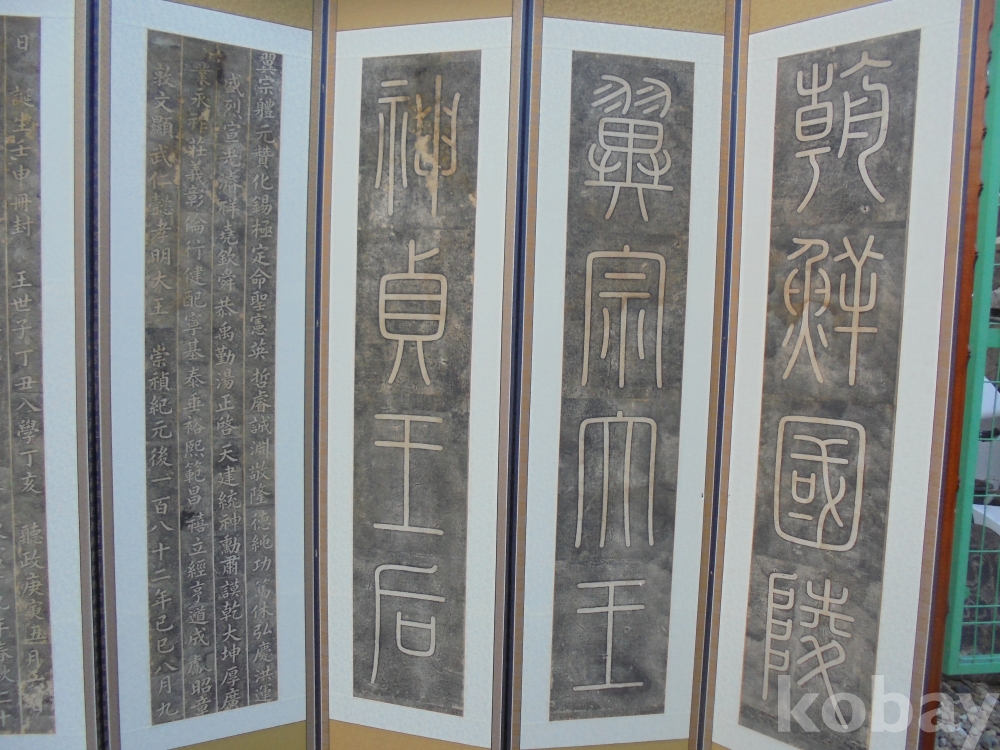 朝鮮國陵
翼宗大王
神貞王后
翼宗體元贊化錫極定命聖憲英哲睿誠淵敬隆德純功篤休弘慶洪運
盛烈宣光濬祥堯欽舜恭禹勤湯正啓天建統神勳肅謨乾大坤厚廣
業永祚莊義彰倫行健配寧基泰垂裕熙範昌禧立經亨道成獻昭章
敦文顯武仁懿孝明大王 崇禎紀元後一百八十二年己巳八月九
日 誕生壬申冊封 王世子丁丑入學丁亥 聽政庚寅五月
kobay